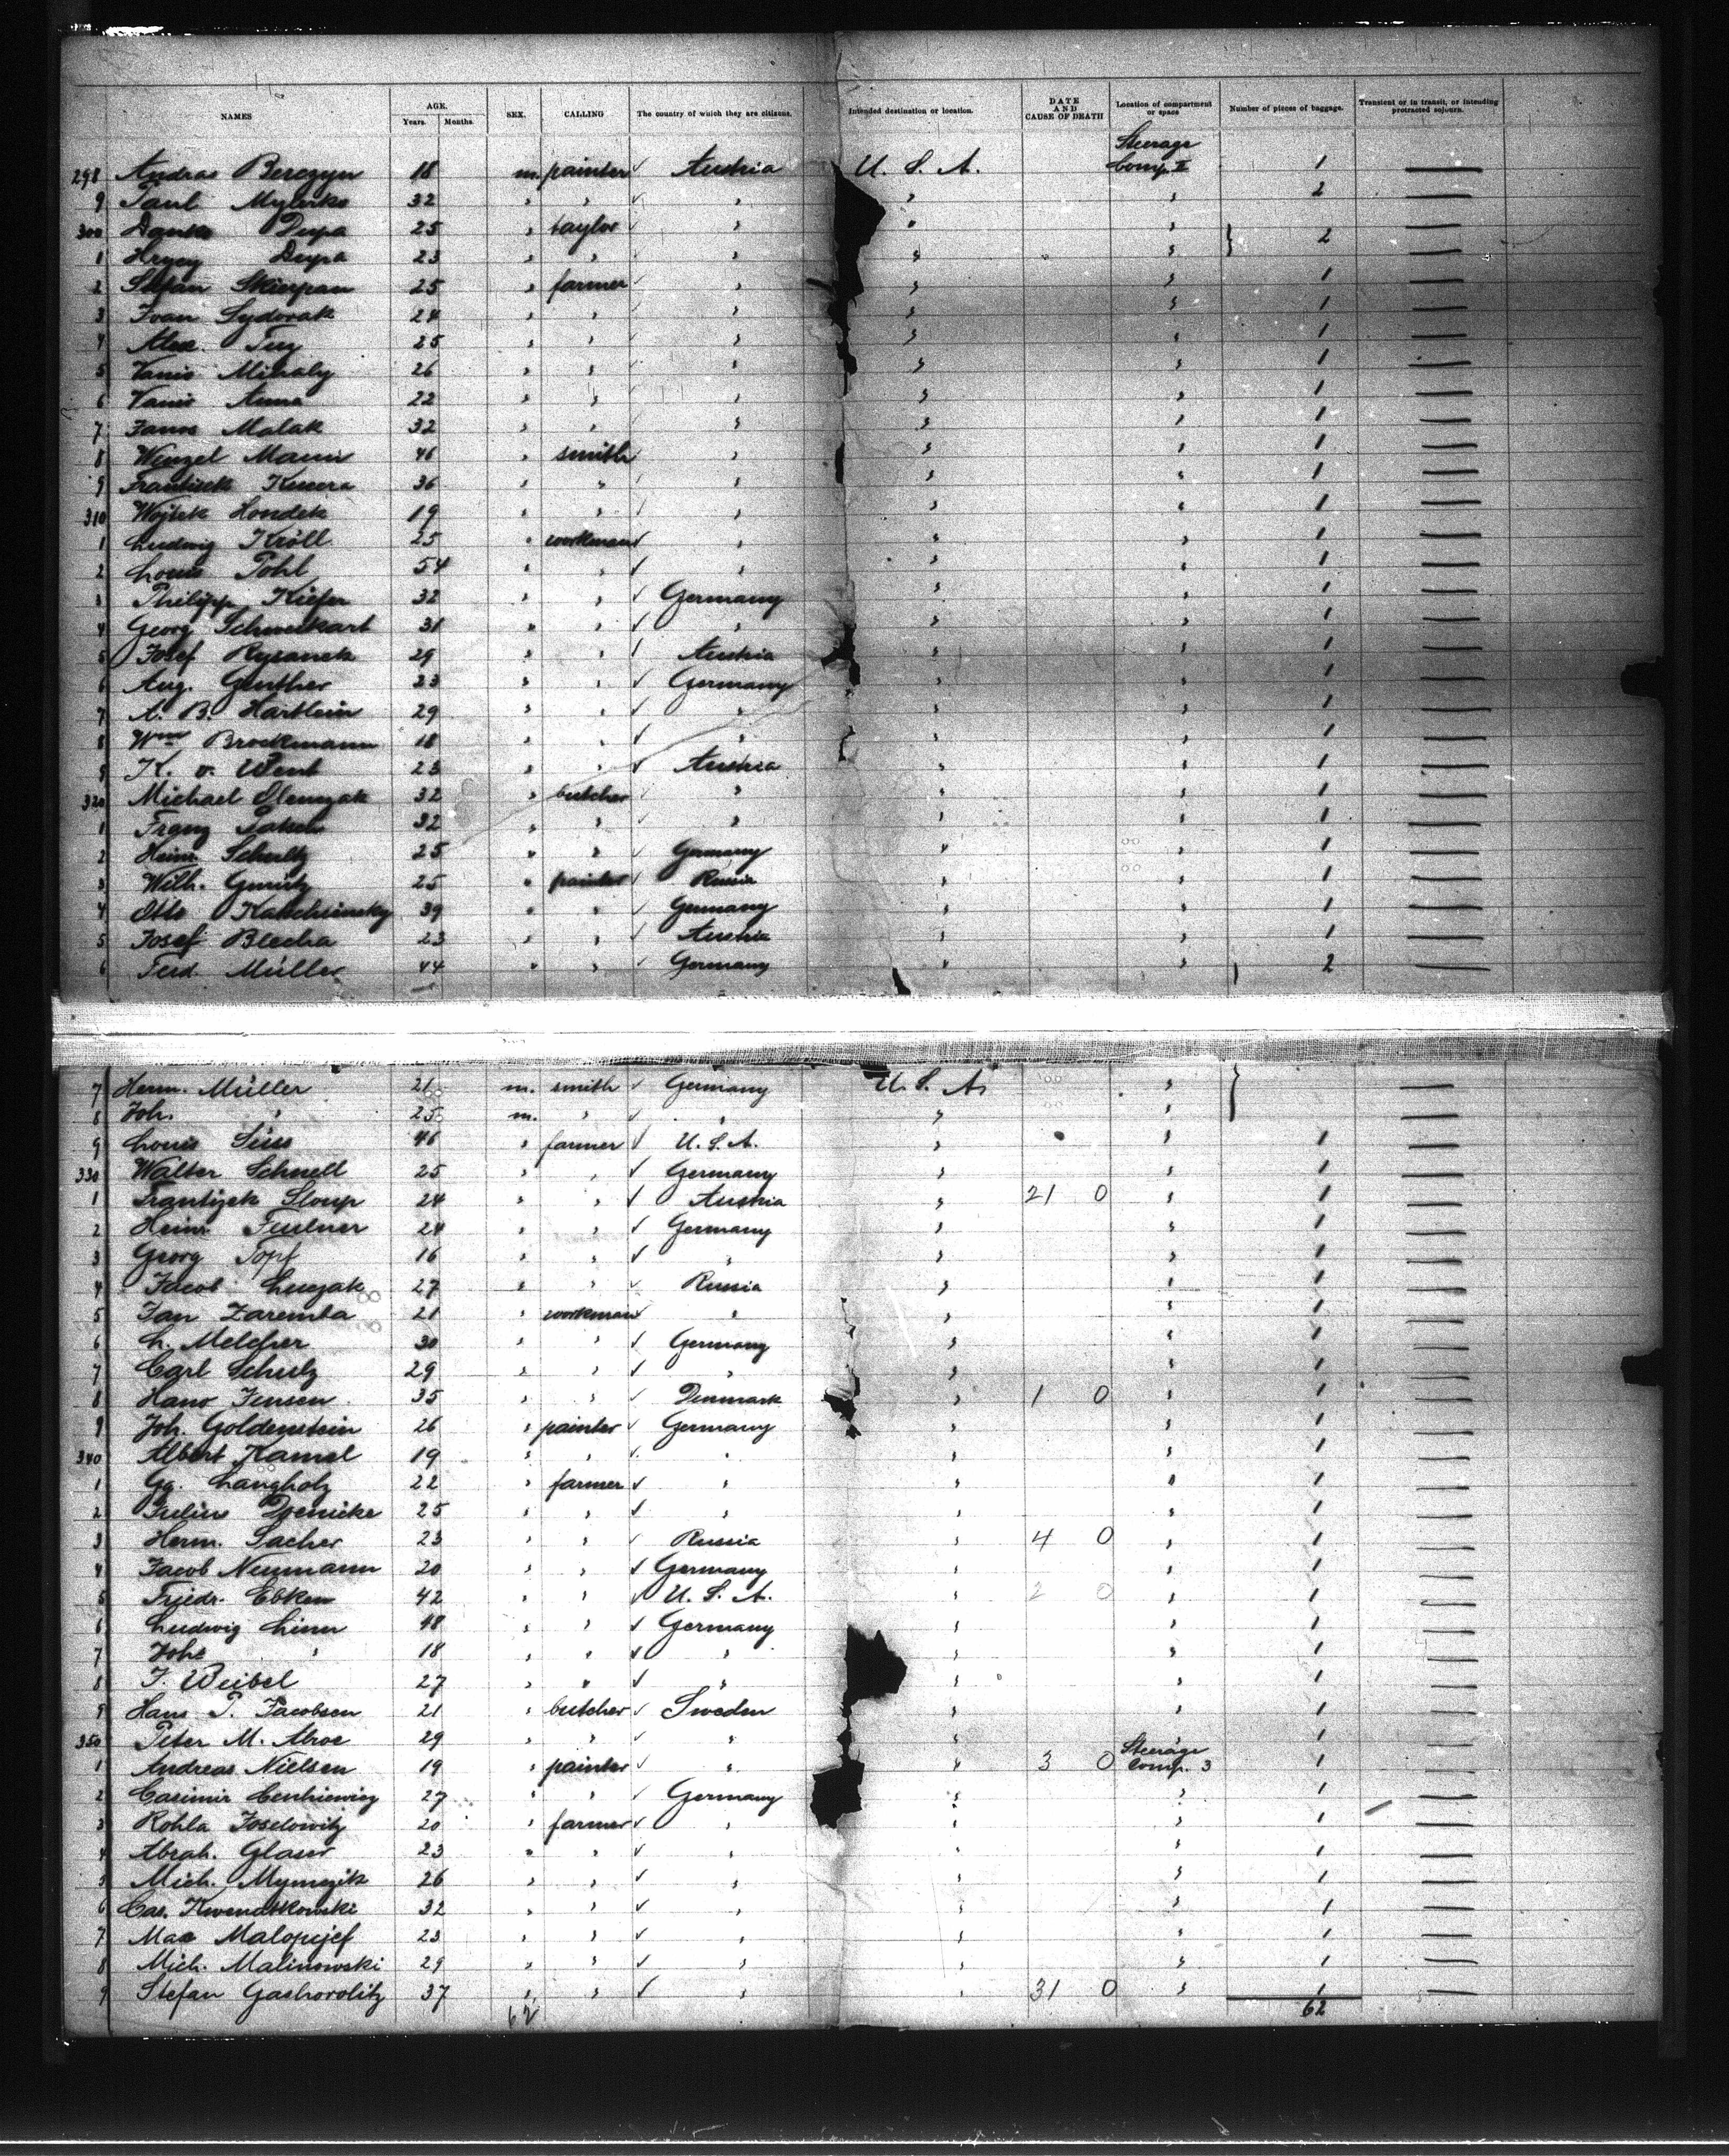 NAMES AGE. SEX. CALLING The country of which they are citizens. Intended destination or location. DATE AND CAUSE OF DEATH Location of compartment or space Number of pieces of baggage. Transient or in transit, or intending protracted sojourn.
Years. Months.
Steerage
298 Andras Berezyn 18 m. painter ✓ Austria U. S. A. Comp. II 1 —
9 Paul 32 " " ✓ " " " 2 —
300 Dupa 25 " taylor ✓ " " " } 2 —
1 Hrycy Dupa 23 " " ✓ " " " —
2 Stefan Skierpan 25 " farmer ✓ " " " 1 —
3 Ivan Sydorak 24 " " ✓ " " " 1 —
4 Alex. 25 " " ✓ " " " 1 —
5 Vanis Mihaly 26 " " ✓ " " " 1 —
6 Vanis Anna 22 " " ✓ " " " 1 —
7 Janos Malak 32 " " ✓ " " " 1 —
8 Wenzel Mann 46 " smith " " " 1 —
9 Frantisek Kucera 36 " " ✓ " " " 1 —
310 Wojtek Hondek 19 " " ✓ " " " 1 —
1 Ludwig Kröll 25 " workman ✓ " " " 1 —
2 Louis Pohl 54 " " ✓ " " " 1 —
3 Philipp Kiefer 32 " " ✓ Germany " " 1 —
4 Georg Schweikart 31 " " ✓ " " " 1 —
5 Josef Rysanek 29 " " ✓ Austria " " 1 —
6 Aug. Genther 23 " " ✓ Germany " " 1 —
7 A. B. Hartlein 29 " " ✓ " " " 1 —
8 Wm Brockmann 18 " " ✓ " " " 1 —
9 K. v. Went 23 " " ✓ Austria " " 1 —
320 Michael 32 " butcher ✓ " " " 1 —
1 Franz 32 " " ✓ " " " 1 —
2 Heinr. Schultz 25 " " ✓ Germany " " 1 —
3 Wilh. 25 " painter ✓ Russia " " 1 —
4 Otto 39 " " ✓ Germany " " 1 —
5 Josef Blecha 23 " " ✓ Austria " " 1 —
6 Ferd. Müller 44 " " ✓ Germany " " } 2 —
7 Herm. Müller 21 m. smith ✓ Germany U. S. A. " } —
8 Joh. " 25 m. " ✓ " " " —
9 Louis Süss 46 " farmer ✓ U. S. A. " " 1 —
330 Walter Schnell 25 " " ✓ Germany " " 1 —
1 Frantizek Sloup 24 " " ✓ Austria " 21 0 " 1 —
2 Heinr. Fuelner 24 " " ✓ Germany " " 1 —
3 Georg Topf 16 " " ✓ " " " 1 —
4 Jacob Luczak 27 " " ✓ Russia " " 1 —
5 Jan Zaremba 21 " workman ✓ " " " 1 —
6 L. Melcher 30 " " ✓ Germany " " 1 —
7 Carl Schulz 29 " " ✓ " " " 1 —
8 Hans Jensen 35 " " ✓ Denmark " 1 0 " 1 —
9 Joh. Goldenstein 26 " painter ✓ Germany " " 1 —
340 Albert Kamel 19 " " ✓ " " " 1 —
1 Gg. Langholz 22 " farmer ✓ " " " 1 —
2 Julius Doenicke 25 " " ✓ " " " 1 —
3 Herm. Sacher 23 " " ✓ Russia " 4 0 " 1 —
4 Jacob Neumann 20 " " ✓ Germany " " 1 —
5 Friedr. Ebken 42 " " ✓ U. S. A. " 2 0 " 1 —
6 Ludwig Linn 48 " " ✓ Germany " " 1 —
7 Johs " 18 " " ✓ " " " 1 —
8 J. Weibel 27 " " ✓ " " " 1 —
9 Hans P. Jacobsen 21 " butcher ✓ Sweden " " 1 —
350 Peter M. Alroe 29 " " ✓ " " " 1 —
Steerage
1 Andreas Nielsen 19 " painter ✓ " " 3 0 Comp. 3 1 —
2 Casimir 27 " " ✓ Germany " " 1 —
3 Rohla Joselowitz 20 " farmer ✓ " " " 1 —
4 Abrah. Glaser 23 " " ✓ " " " 1 —
5 Mich. 26 " " ✓ " " " 1 —
6 Cas. Kwendtkowski 32 " " ✓ " " " 1 —
7 Max Malopijef 23 " " ✓ " " " 1 —
8 Mich. Malinowski 29 " " ✓ " " " 1 —
9 Stefan Gashorolitz 37 " " ✓ " " 31 0 " 1 —
62 62